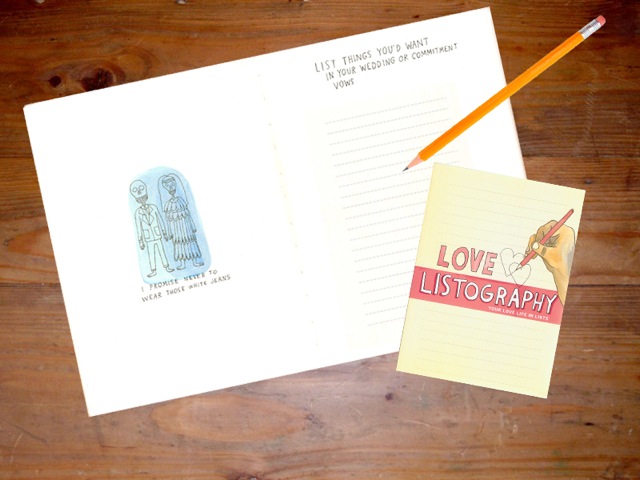 LIST THINGS YOU'D WANT
IN YOUR WEDDING OR COMMITMENT
VOWS
I PROMISE NEVER TO
WEAR THOSE WHITE JEANS
LOVE
LISTOGRAPHY
YOUR LOVE LIFE IN LISTS